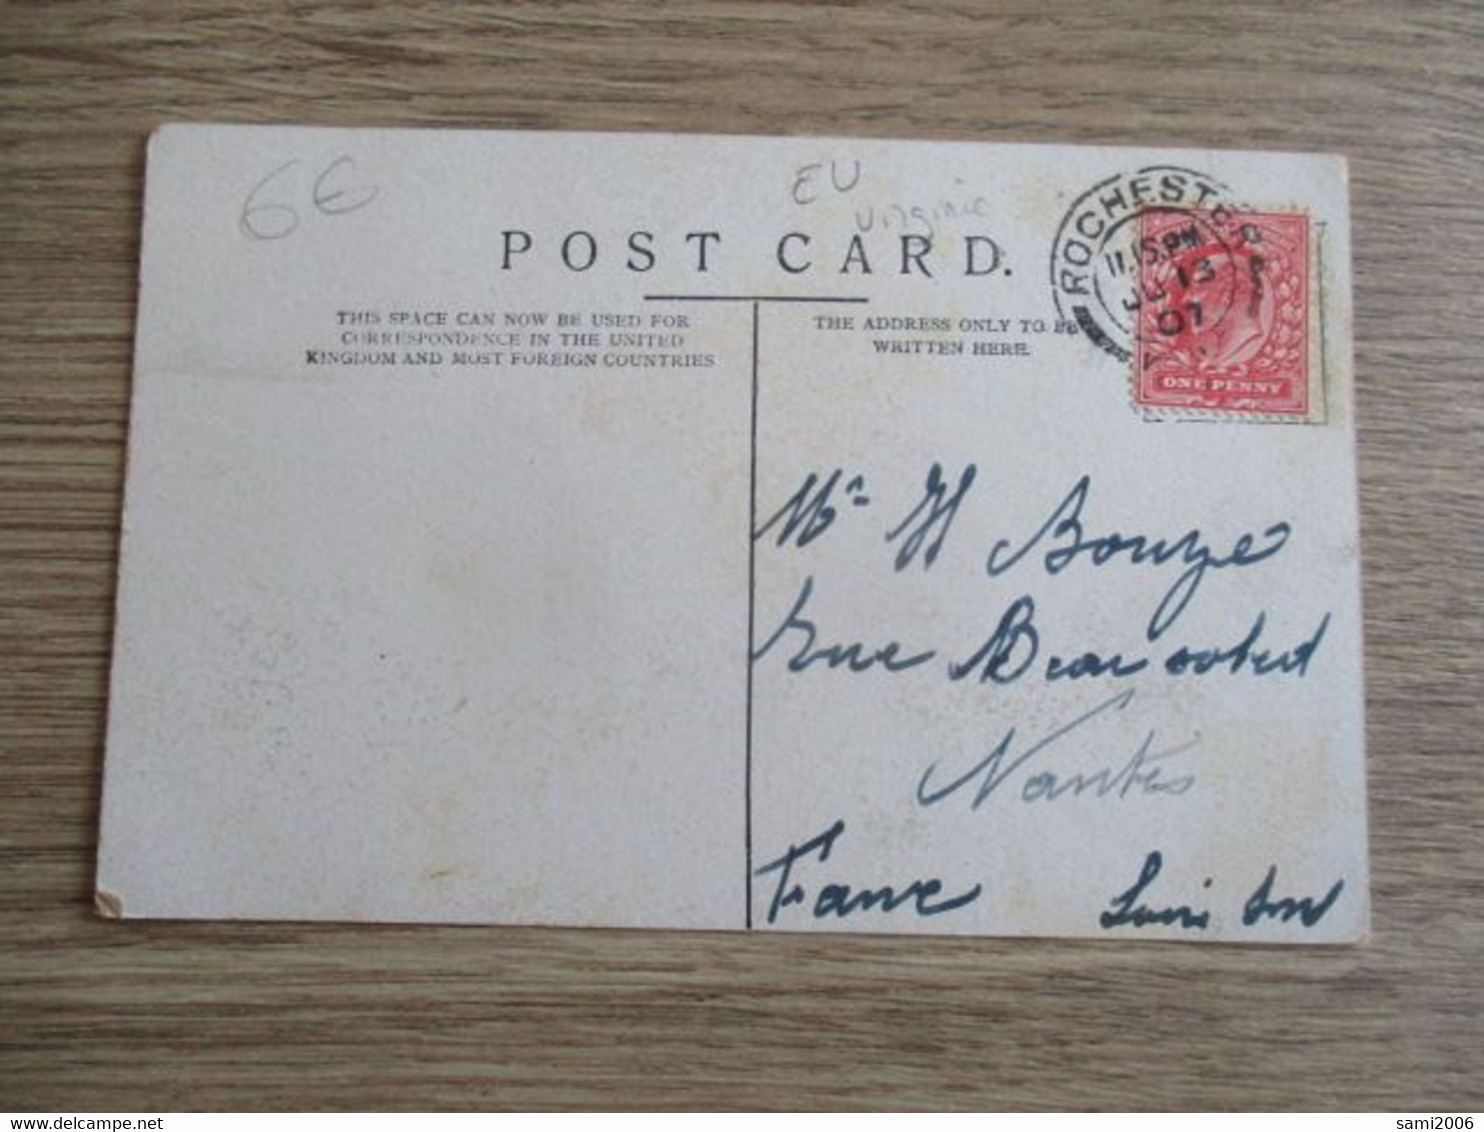 6€
EU
Virginie
POST CARD.
THIS SPACE CAN NOW BE USED FOR
CORRESPONDENCE IN THE UNITED
KINGDOM AND MOST FOREIGN COUNTRIES
THE ADDRESS ONLY TO BE
WRITTEN HERE.
ROCHESTER
11.15 PM
13
07
ONE PENNY
Mr H Bouyé
rue
Nantes
France
sami2006